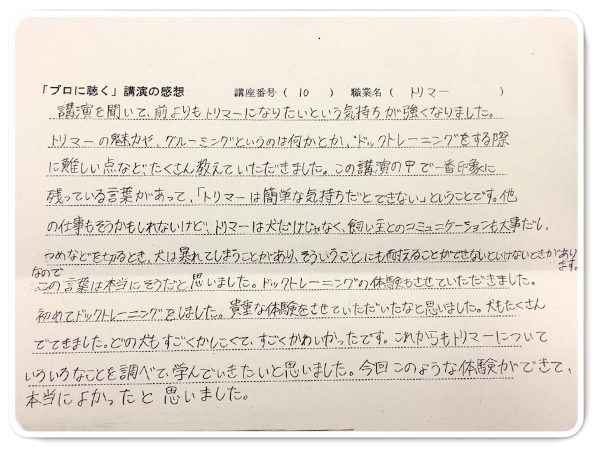 「プロに聴く」講演の感想　講座番号（ 10 ）　職業名（ トリマー ）
講演を聞いて、前よりもトリマーになりたいという気持ちが強くなりました。
トリマーの魅力や、グルーミングというのは何かとか、ドックトレーニングをする際
に難しい点などたくさん教えていただきました。この講演の中で一番印象に
残っている言葉があって、「トリマーは簡単な気持ちだとできない」ということです。他
の仕事もそうかもしれないけど、トリマーは犬だけじゃなく、飼い主とのコミュニケーションも大事だし、
つめなどを切るとき、犬は暴れてしまうことがあり、そういうことにも耐えることができないといけないときがあります。
なので
この言葉は本当にそうだと思いました。ドックトレーニングの体験もさせていただきました。
初めてドックトレーニングをしました。貴重な体験をさせていただいたなと思いました。犬もたくさん
でてきました。どの犬もすごくかしこくて、すごくかわいかったです。これからもトリマーについて
いろいろなことを調べて、学んでいきたいと思いました。今回このような体験ができて、
本当によかったと思いました。